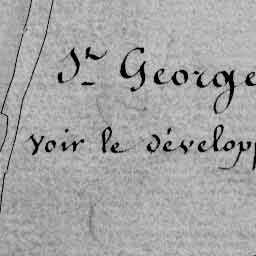 St George
voir le développ